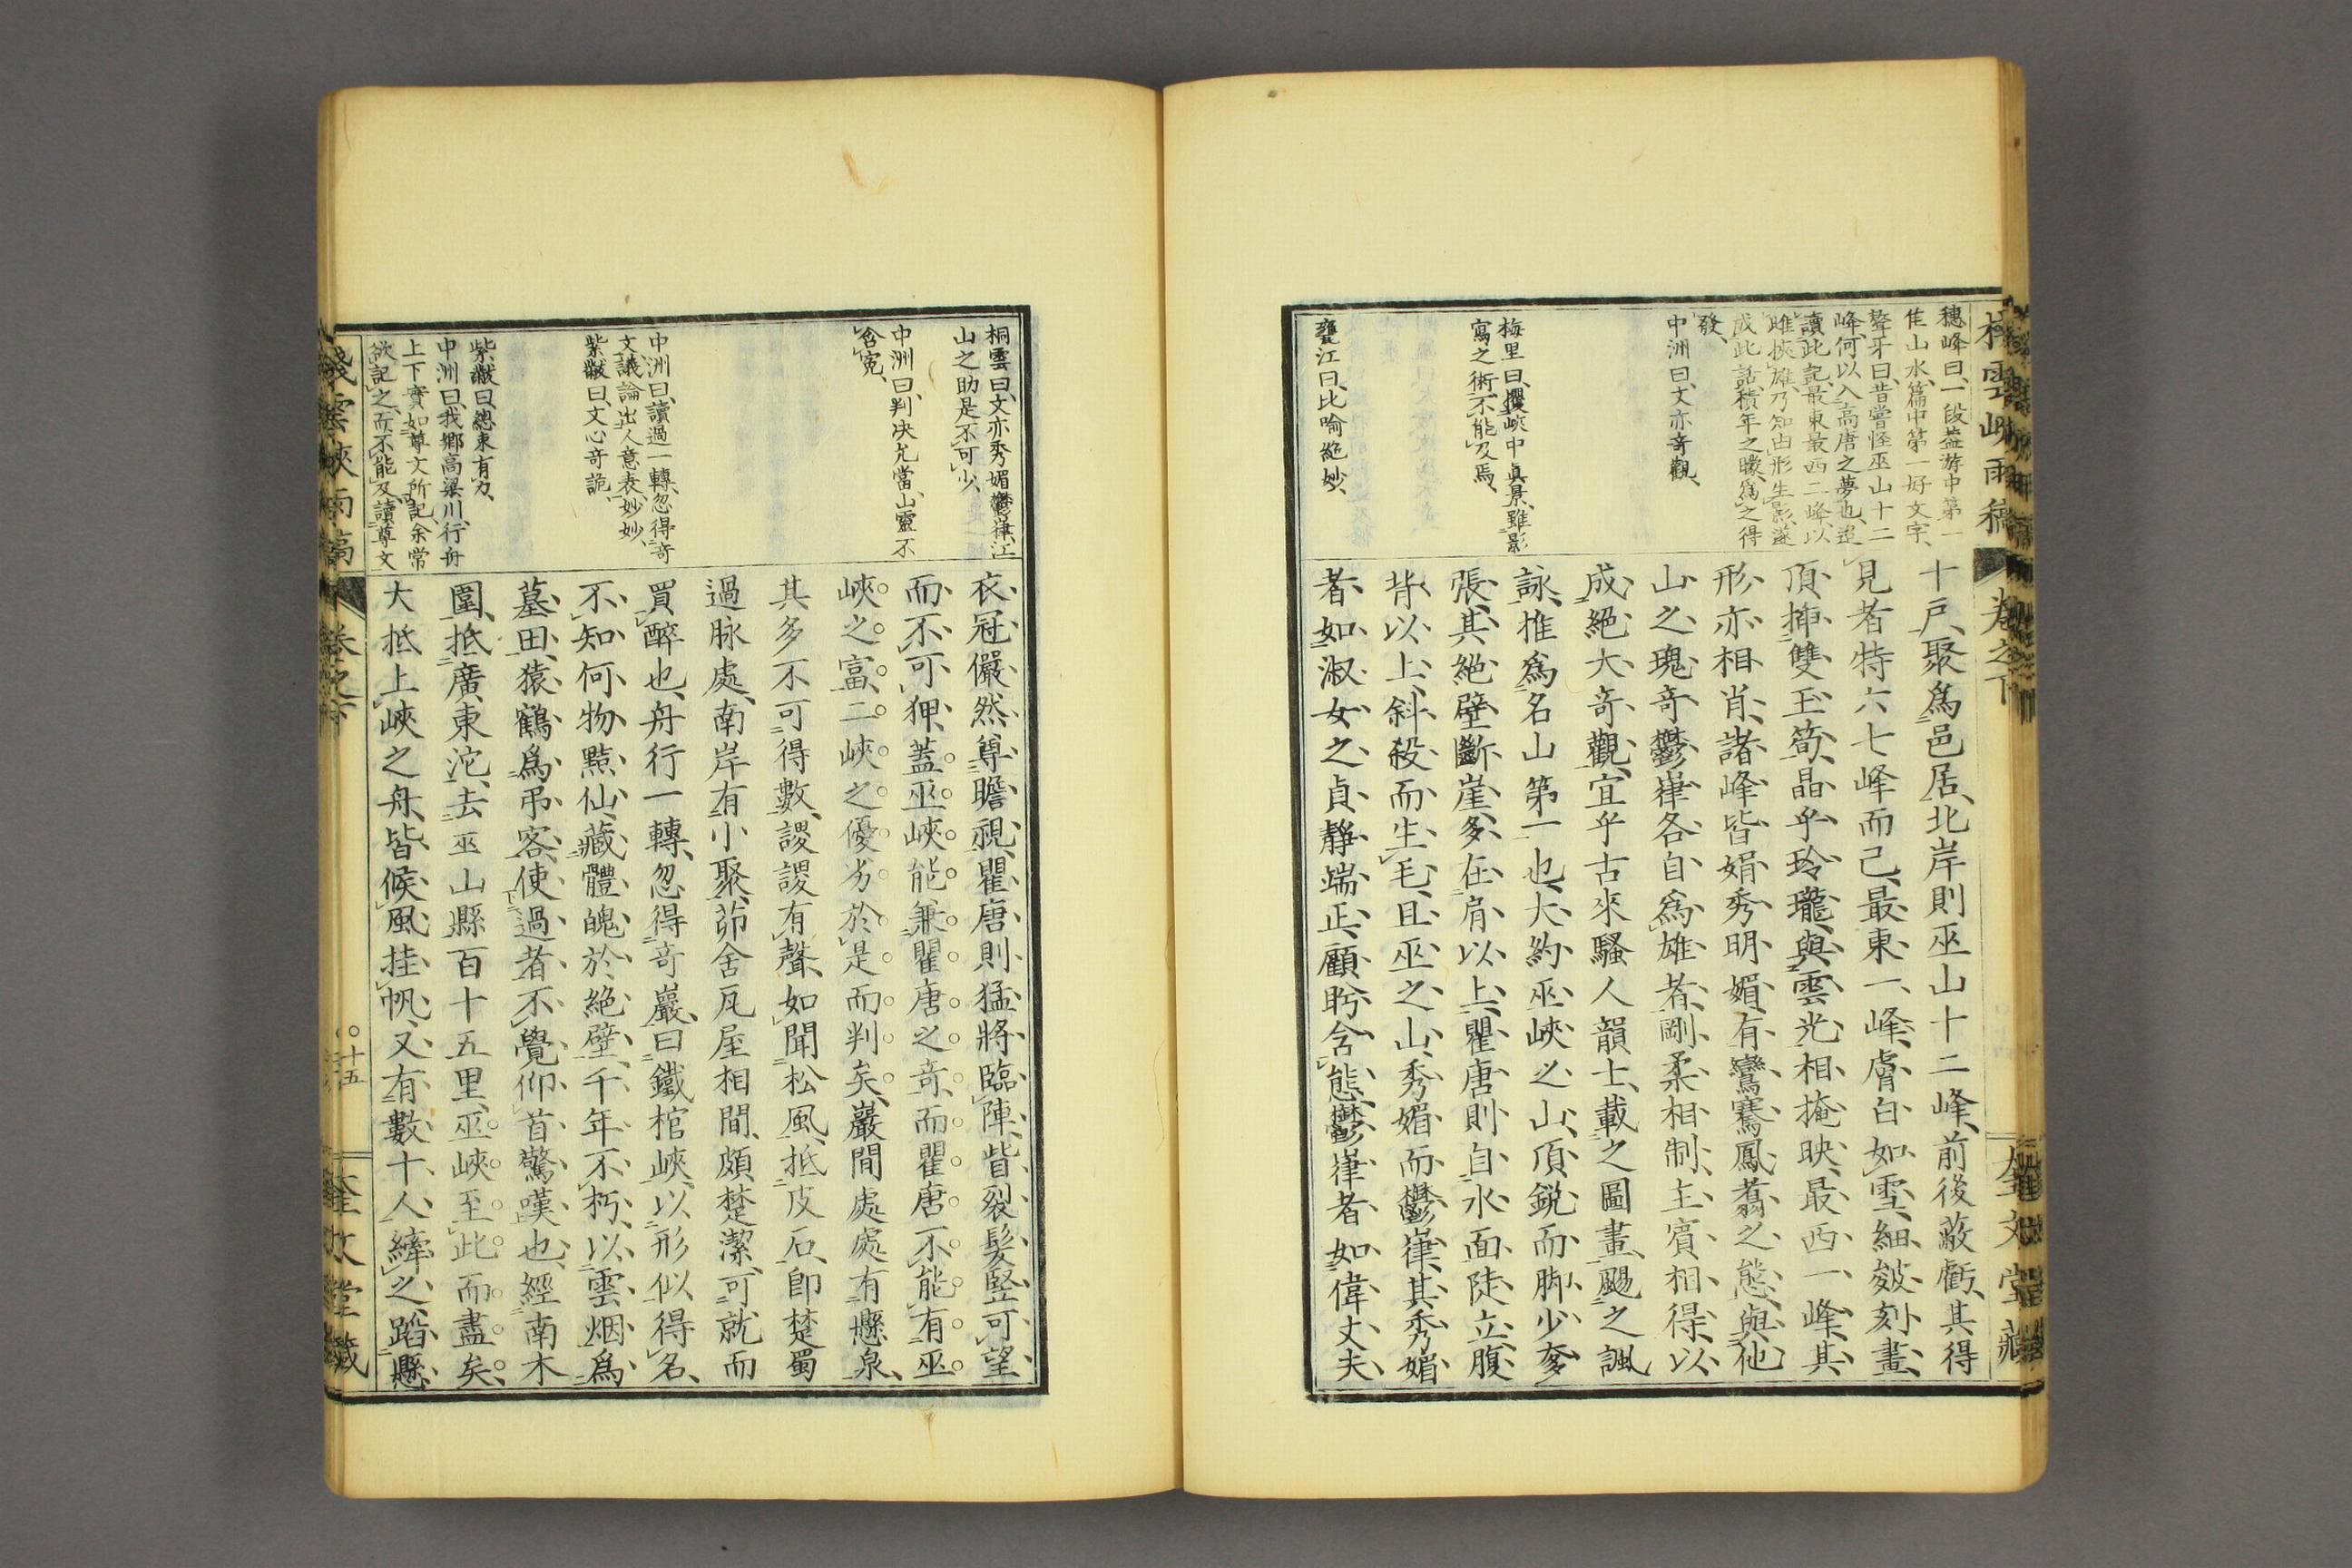 棧雲峽雨稿
卷之下
奎文堂藏
穗峰曰、一段益游中第一
佳山水、篇中第一好文字、
聱牙曰、昔嘗怪巫山十二
峰、何以入高唐之夢也、迨
讀此記、最東最西二峰、以
雌挾雄、乃知由形生影、遂
成此話、積年之曖、爲之得
發、
中洲曰、文亦奇觀、
梅里曰、攫峽中眞景、雖影
寫之術、不能及焉、
甕江曰、比喻絶妙、
十戶、聚爲邑居、北岸則巫山十二峰、前後蔽虧、其得
見者特六七峰而已、最東一峰、膚白如雪、細皴刻畫、
頂挿雙玉筍、晶乎玲瓏、與雲光相掩映、最西一峰、其
形亦相肖、諸峰皆娟秀明媚、有鸞騫鳳翥之態、與他
山之瑰奇鬱嵂各自爲雄者、剛柔相制、主賓相得、以
成絶大奇觀、宜乎古來騷人韻士、載之圖畫、颺之諷
詠、推爲名山第一也、大約巫峽之山、頂銳而脚少奓
張、其絶壁斷崖、多在肩以上、瞿唐則自水面陡立、腹
背以上、斜殺而生毛、且巫之山、秀媚而鬱嵂、其秀媚
者、如淑女之貞靜端正、顧盻含態、鬱嵂者、如偉丈夫
桐雲曰、文亦秀媚鬱嵂、江
山之助是不可少、
中洲曰、判决允當、山靈不
含寃、
中洲曰、讀過一轉、忽得奇
文、議論出人意表、妙妙、
紫瀫曰、文心奇詭
紫瀫曰、總束有力、
中洲曰、我鄉高梁川、行舟
上下實如尊文所記、余常
欲記之、而不能及、讀尊文
衣冠儼然、尊瞻視、瞿唐則猛將臨陣、眥裂髮竪、可望
而不可狎、蓋巫峽能兼瞿唐之奇、而瞿唐不能有巫
峽之富、二峽之優劣、於是而判矣、巖間處處有懸泉、
其多不可得數、謖謖有聲、如聞松風、抵皮石、卽楚蜀
過脉處、南岸有小聚、茆舍瓦屋相間、頗楚潔、可就而
買醉也、舟行一轉、忽得奇巖、曰鐵棺峽、以形似得名、
不知何物黠仙、藏體魄於絶壁、千年不朽、以雲烟爲
墓田、猿鶴爲吊客、使過者不覺仰首驚嘆也、經南木
圍、抵廣東沱、去巫山縣百十五里、巫峽至此而盡矣、
大抵上峽之舟、皆候風挂帆、又有數十人縴之、蹈懸
棧雲峽雨稿
卷之下
十五
奎文堂藏